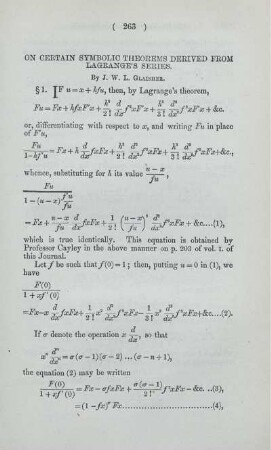 ( 263 )
ON CERTAIN SYMBOLIC THEOREMS DERIVED FROM
LAGRANGE'S SERIES.
By J. W. L. GLAISHER.
§ 1. IF u = x + hfu, then, by Lagrange's theorem,
Fu = Fx + hfxF'x + h²/2! d/dx f²xF'x + h³/3! d²/dx² f³xF'x + &c.
or, differentiating with respect to x, and writing Fu in place
of F'u,
Fu/(1−hf'u) = Fx + h d/dx fxFx + h²/2! d²/dx² f²xFx + h³/3! d³/dx³ f³xFx + &c.,
whence, substituting for h its value (u − x)/fu,
Fu/(1 − (u − x) f'u/fu)
= Fx + (u − x)/fu d/dx fxFx + 1/2! ((u − x)/fu)² d²/dx² f²xFx + &c....(1),
which is true identically. This equation is obtained by
Professor Cayley in the above manner on p. 293 of vol. I. of
this Journal.
Let f be such that f(0) = 1; then, putting u = 0 in (1), we
have
F(0)/(1 + xf'(0))
= Fx − x d/dx fxFx + 1/2! x² d²/dx² f²xFx − 1/3! x³ d³/dx³ f³xFx + &c.(2).
If σ denote the operation x d/dx, so that
xⁿ dⁿ/dxⁿ = σ (σ − 1)(σ − 2) ...(σ − n + 1),
the equation (2) may be written
F(0)/(1 + xf'(0)) = Fx − σfxFx + σ(σ − 1)/2! f²xFx − &c. ..(3),
= (1 − fx)^σ Fx..............................(4),